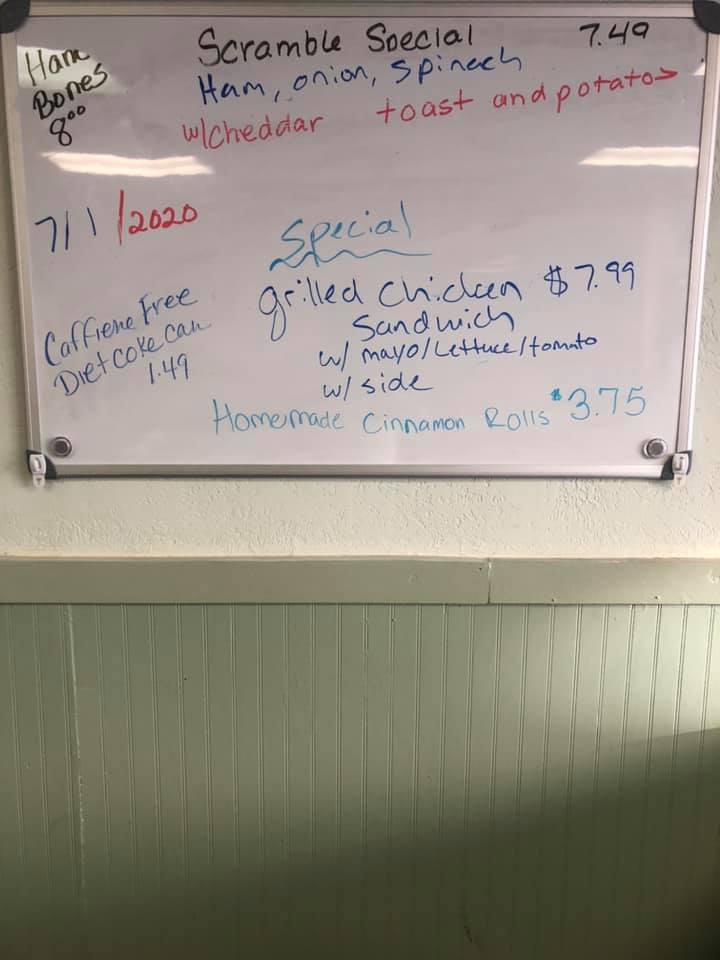 Ham
Bones
8⁰⁰
Scramble Special 7.49
Ham, onion, spinach
w/cheddar toast and potatos
7/1/2020
Special
grilled chicken $7.99
Sandwich
w/ mayo/Lettuce/tomato
w/ side
Caffiene Free
Diet coke can
1.49
Homemade Cinnamon Rolls $3.75